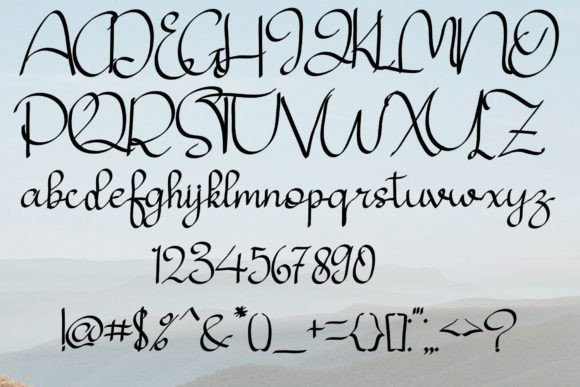 ACDEGHIJKLMNO
PQRSTUVWXYZ
abcdefghijklmnopqrstuvwxyz
1234567890
!@#$%^&*()_+={}[]:"';,.<>?